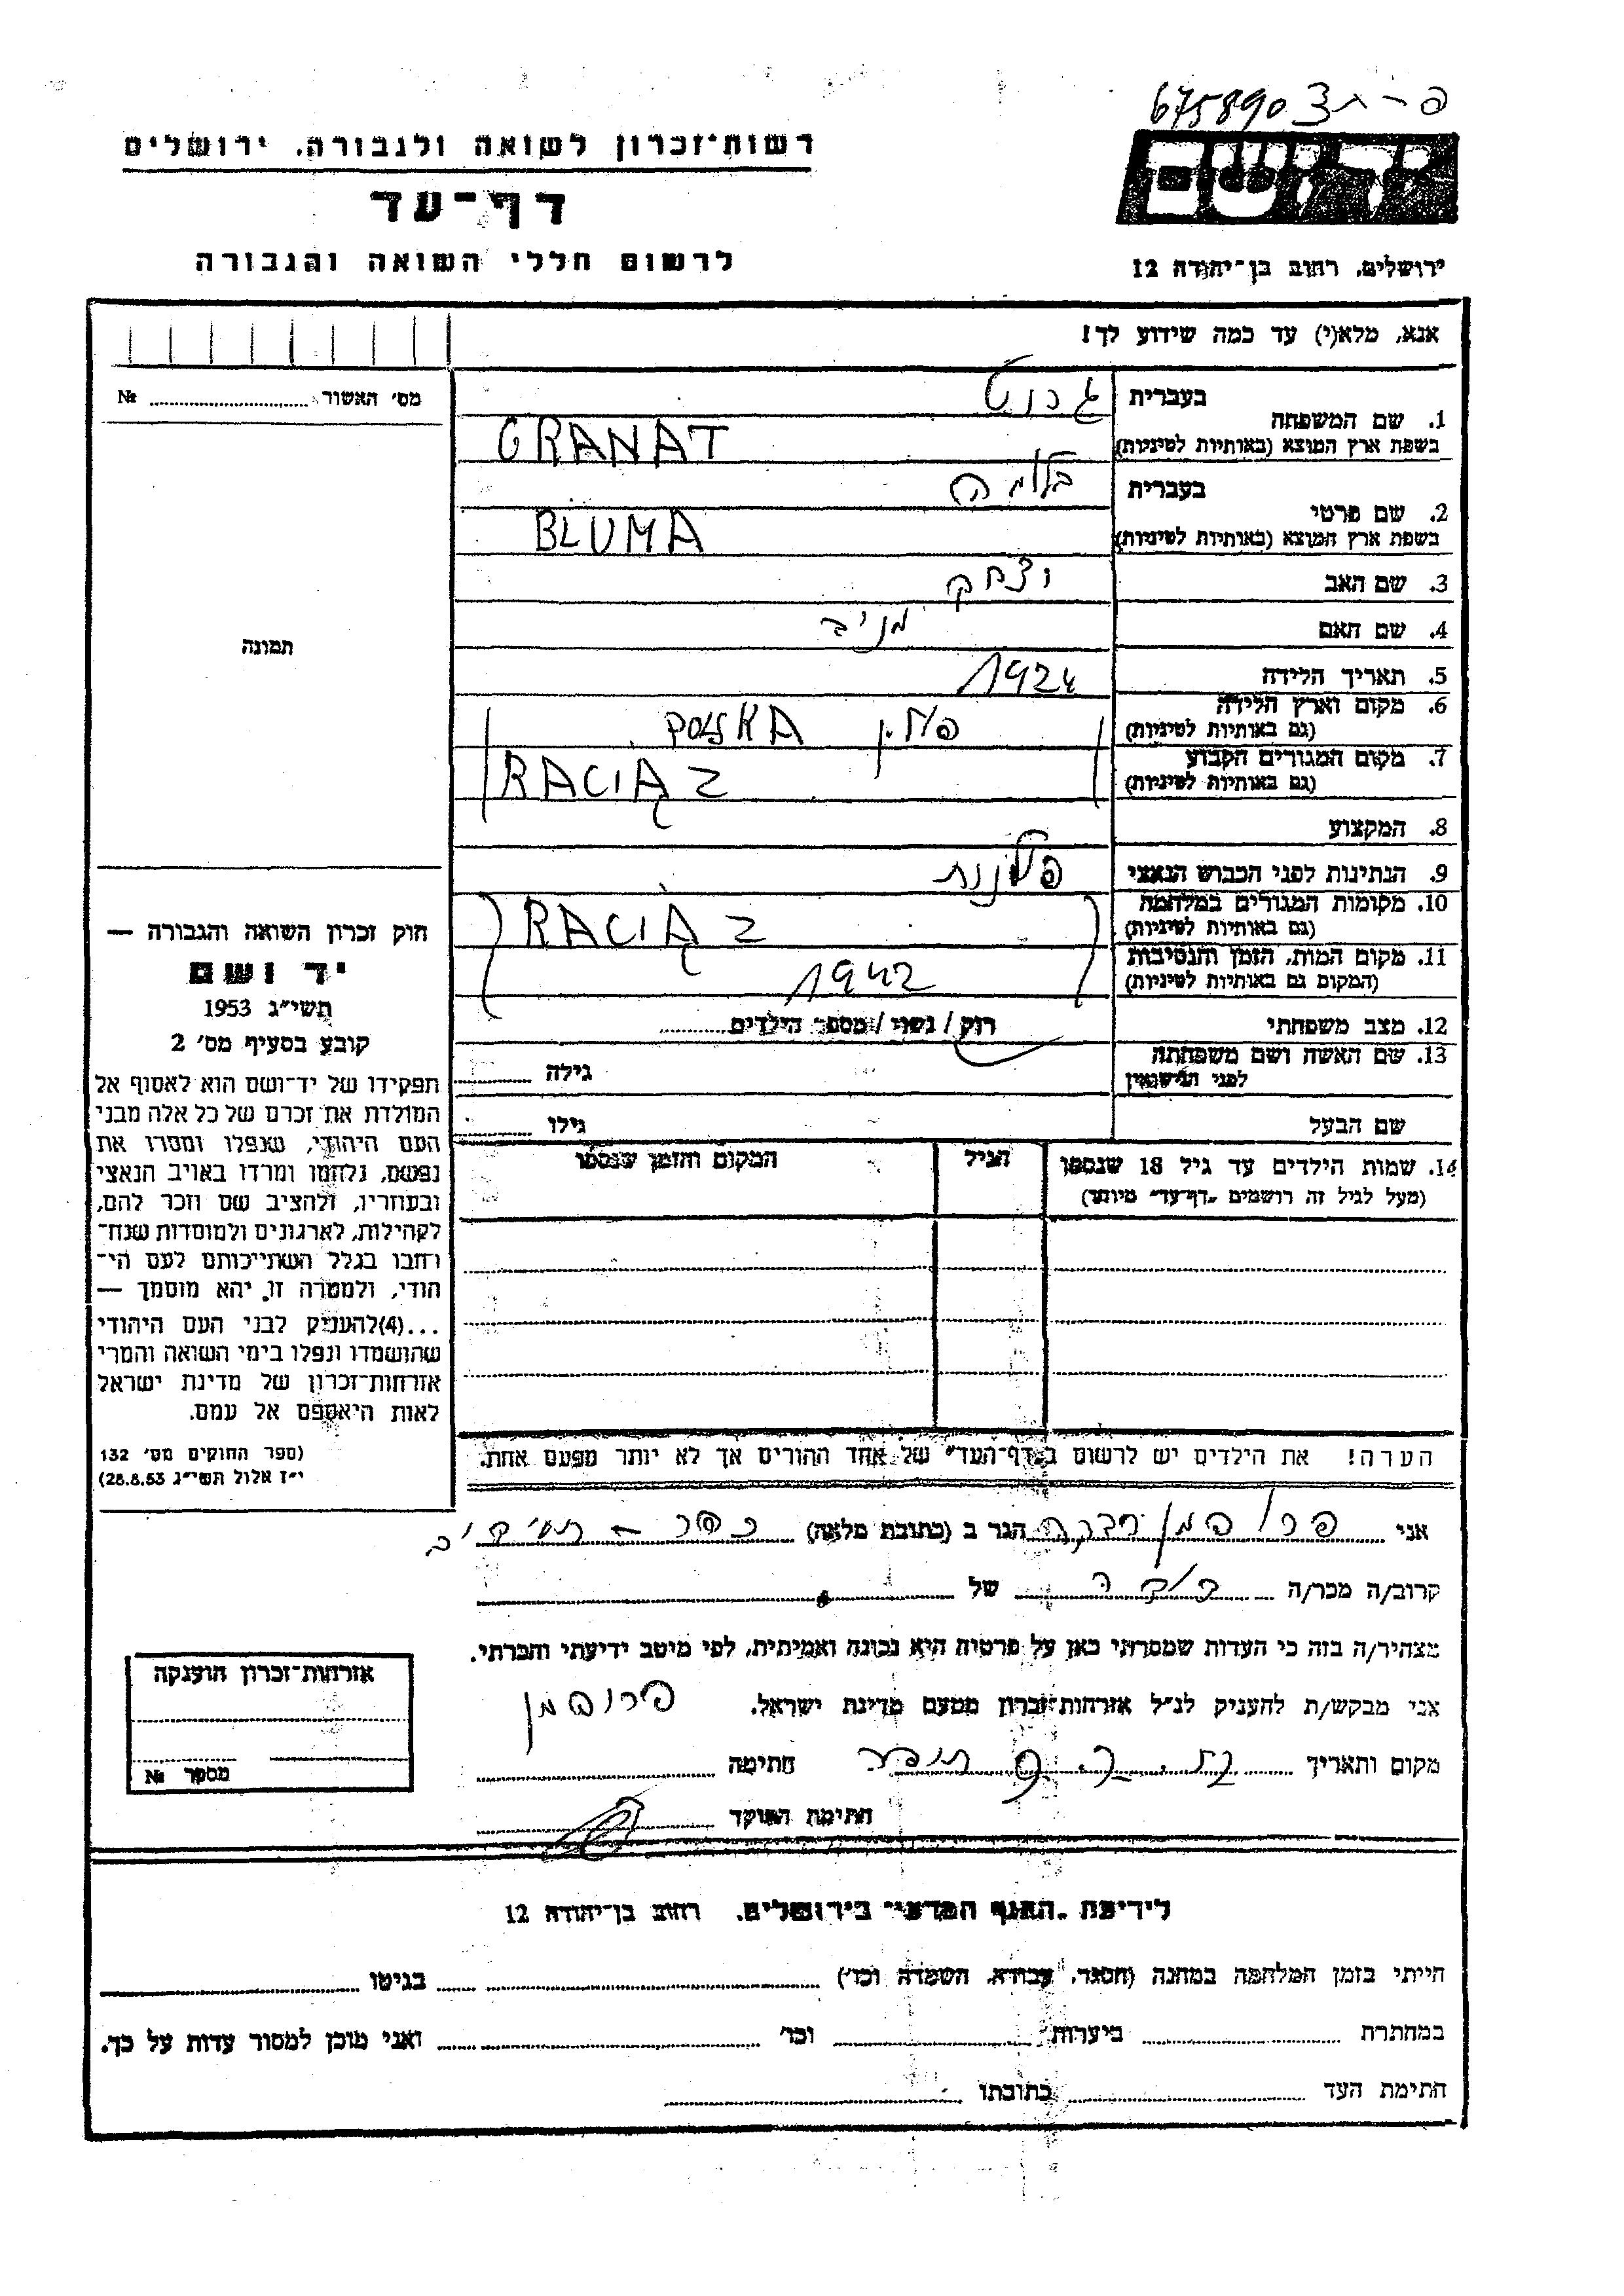 675890 פ-רת
רשות־זכרון לשואה ולגבורה, ירושלים
יד ושם
דף־עד
לרשום חללי השואה והגבורה
ירושלים, רחוב בן־יהודה 12
אנא, מלא(י) עד כמה שידוע לך!
מס׳ האשור №
1. שם המשפחה
בעברית
גרנט
בשפת ארץ המוצא (באותיות לטיניות)
GRANAT
2. שם פרטי
בעברית
בלומה
בשפת ארץ המוצא (באותיות לטיניות)
BLUMA
3. שם האב יצחק
4. שם האם
תמונה
5. תאריך הלידה 1924
6. מקום וארץ הלידה
(גם באותיות לטיניות)
פולין POLSKA
7. מקום המגורים הקבוע
(גם באותיות לטיניות)
RACIĄZ
8. המקצוע
9. הנתינות לפני הכבוש הנאצי פולנית
10. מקומות המגורים במלחמה
(גם באותיות לטיניות)
RACIĄZ
11. מקום המות, הזמן והנסיבות
(המקום גם באותיות לטיניות)
1942
12. מצב משפחתי רוק / נשוי / מספר הילדים
13. שם האשה ושם משפחתה
לפני הנישואין
גילה
שם הבעל גילו
14. שמות הילדים עד גיל 18 שנספו הגיל המקום והזמן שנספו
(מעל לגיל זה רושמים „דף־עד״ מיוחד)
חוק זכרון השואה והגבורה —
יד ושם
תשי״ג 1953
קובע בסעיף מס׳ 2
תפקידו של יד־ושם הוא לאסוף אל
המולדת את זכרם של כל אלה מבני
העם היהודי, שנפלו ומסרו את
נפשם, נלחמו ומרדו באויב הנאצי
ובעוזריו, ולהציב שם וזכר להם,
לקהילות, לארגונים ולמוסדות שנח־
רחבו בגלל השתייכותם לעם הי־
הודי, ולמטרה זו, יהא מוסמך —
...(4)להעניק לבני העם היהודי
שהושמדו ונפלו בימי השואה והמרי
אזרחות־זכרון של מדינת ישראל
לאות היאספם אל עמם.
(ספר החוקים מס׳ 132
י״ז אלול תשי״ג 28.8.53)
הערה! את הילדים יש לרשום ב„דף־העד״ של אחד ההורים אך לא יותר מפעם אחת.
אני פרוימן רבקה הגר ב (כתובת מלאה) כפר
קרוב/ה מכר/ה של
מצהיר/ה בזה כי העדות שמסרתי כאן על פרטיה היא נכונה ואמיתית, לפי מיטב ידיעתי והכרתי.
אני מבקש/ת להעניק לנ״ל אזרחות־זכרון מטעם מדינת ישראל.
מקום ותאריך חתימה פרוימן
חתימת הפוקד
אזרחות־זכרון הוענקה
מספר №
לידיעת „האגף המדעי״ בירושלים, רחוב בן־יהודה 12
הייתי בזמן המלחמה במחנה (הסגר, עבודה, השמדה וכו׳) בגיטו
במחתרת ביערות וכו׳ ואני מוכן למסור עדות על כך.
חתימת העד כתובתו